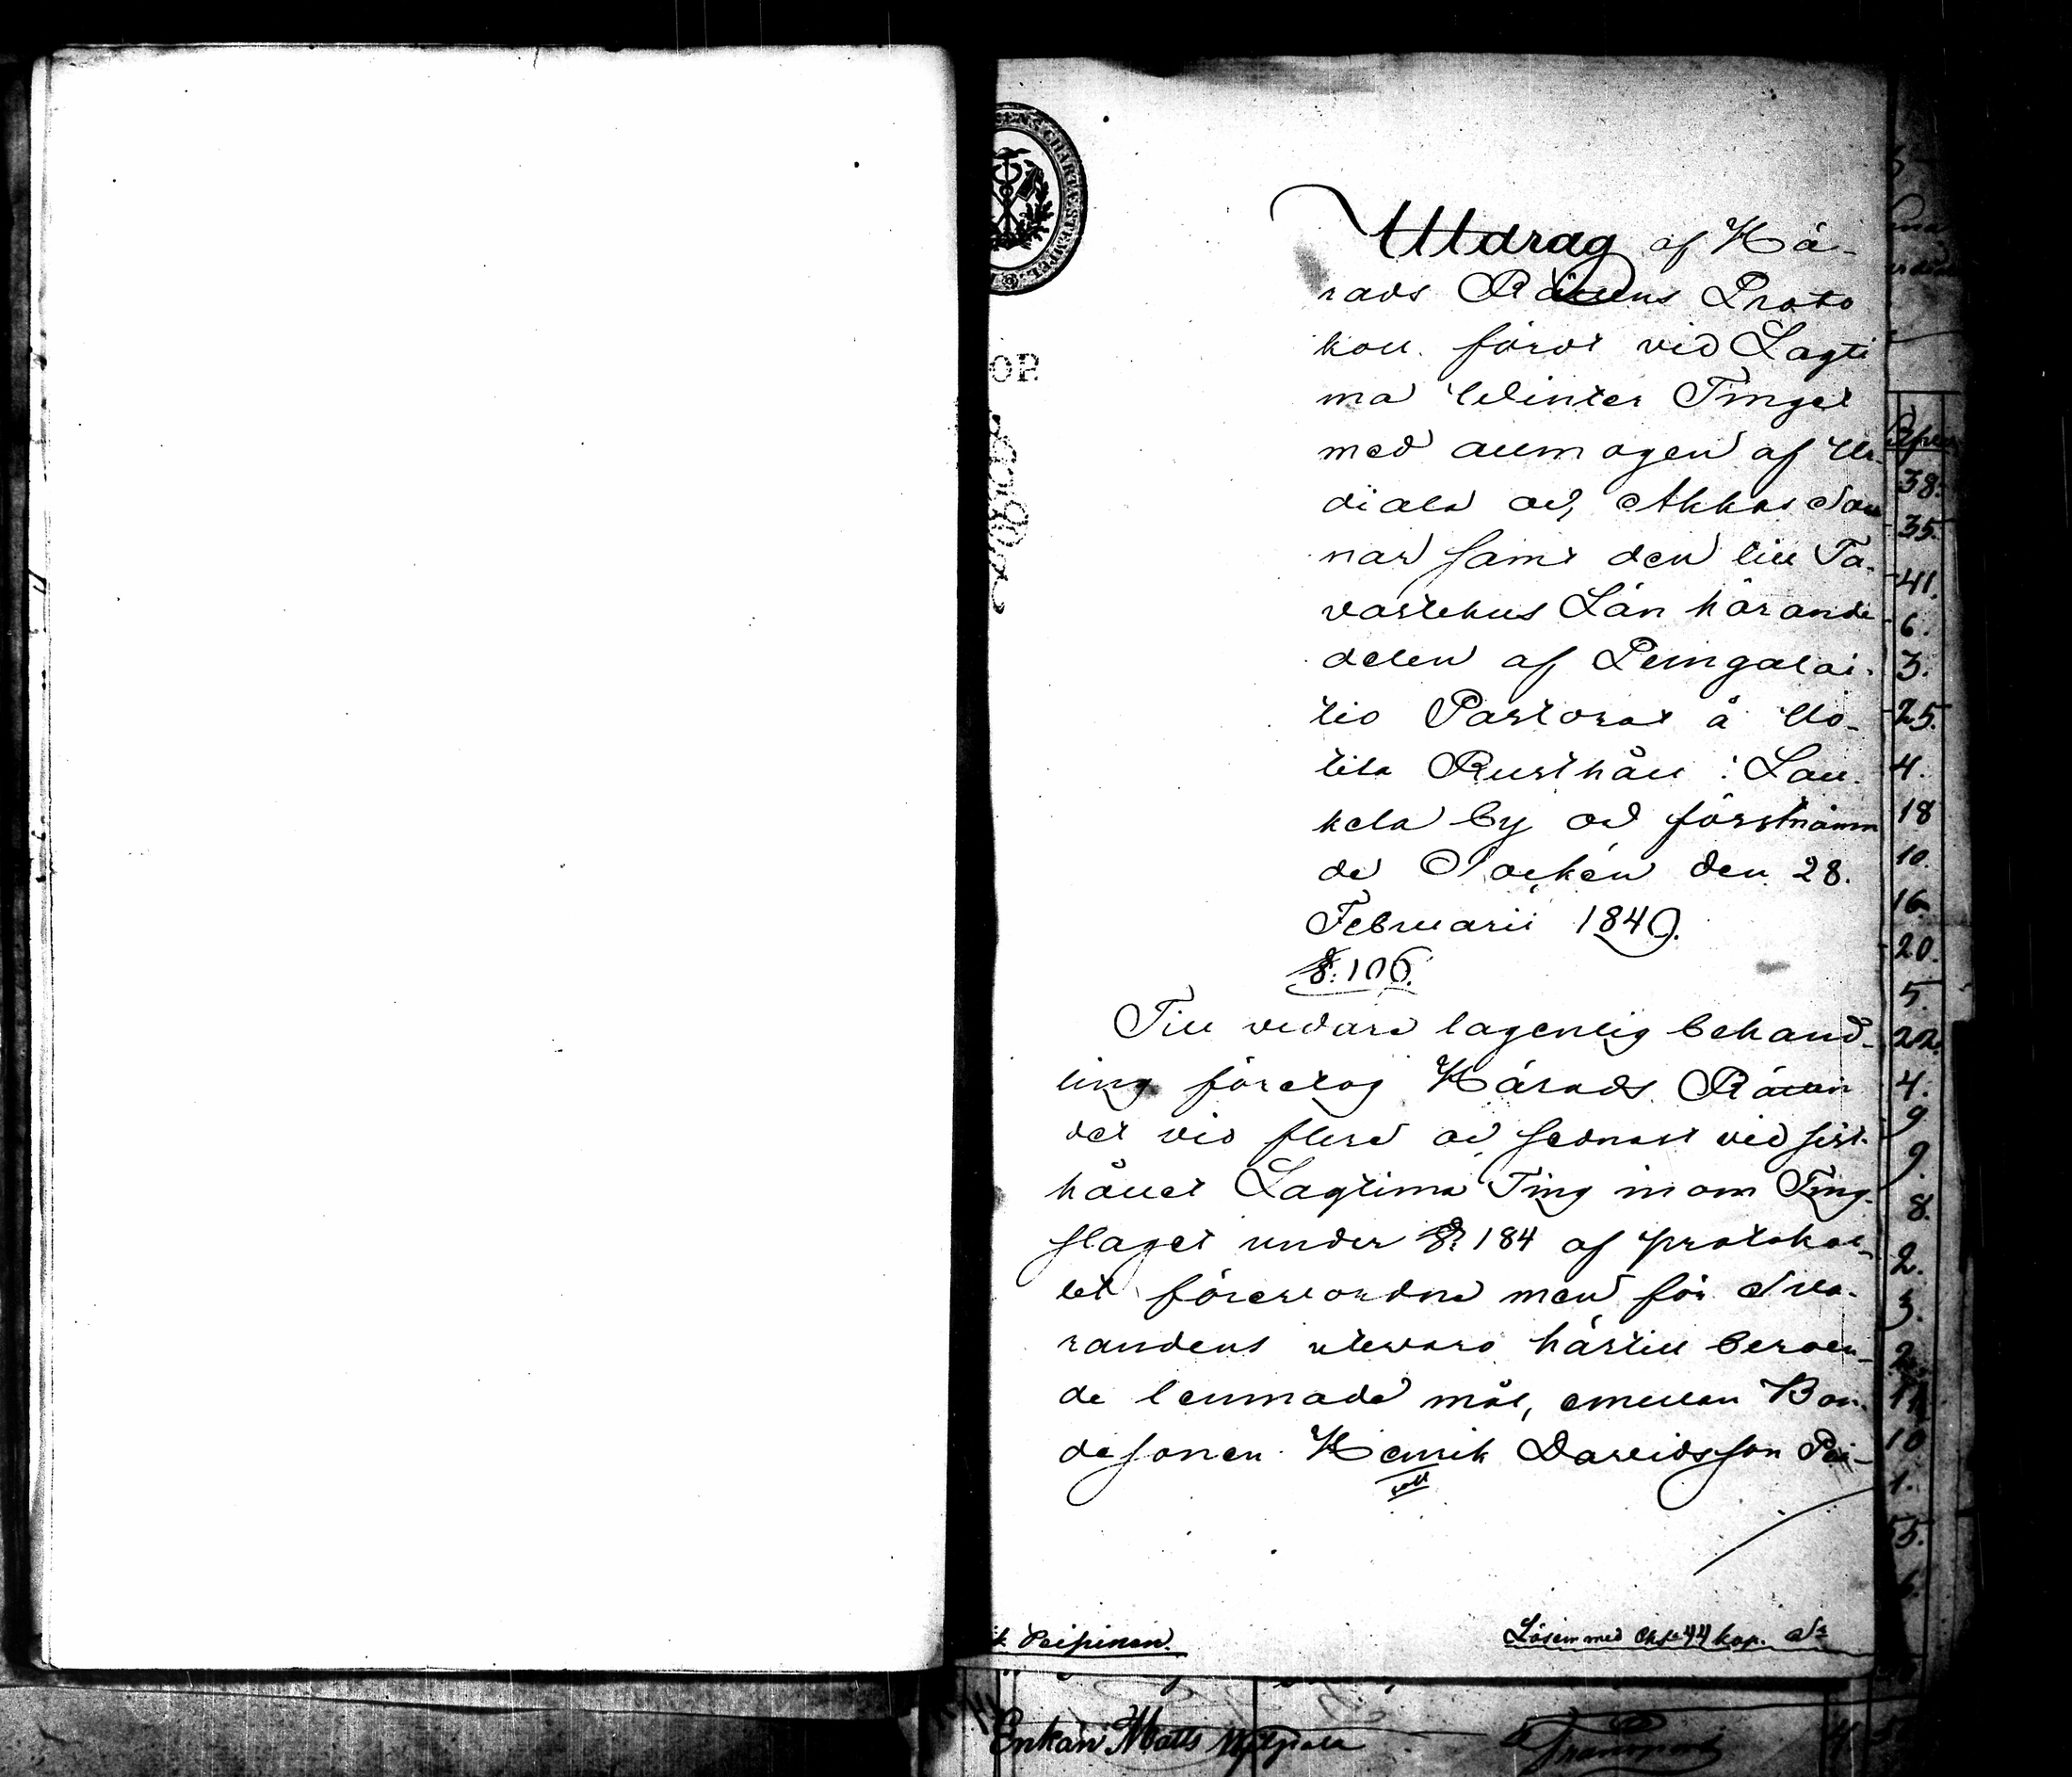 Utdrag af Hä-
rads Rättens Proto
koll fördt vid Lagti
ma Winter Tinget
med allmogen af Ur-
diala och Akkas Soc
nar samt den till Ta-
vastehus Län hörande
delen af Pemgalai-
tio Pastorat å No-
tila Rusthåll i Lau-
kela by och förstnämn
de Socken den 28.
Februarii 1849.
§. 106.
Till vidare lagenlig behand-
ling företog Härads Rätten
det vid flere och sednast vid sist-
hållet Lagtima Ting inom Ting-
slaget under §. 184 af protokol-
let förevordne men för Sva-
randens utevaro härtill beroen-
de lemnade mål, emellan Bon-
desonen Henrik Davidsson Pei-
Peipinen.
Lösen med Chte 44 kop. Sr
OR
CHARTÆ STEMPEL
Enkan Matts
Transport
38.
35.
41.
6.
3.
25.
4.
18
10.
16.
20.
5.
22.
4.
9.
9.
8.
2.
3.
2.
10
1.
55.